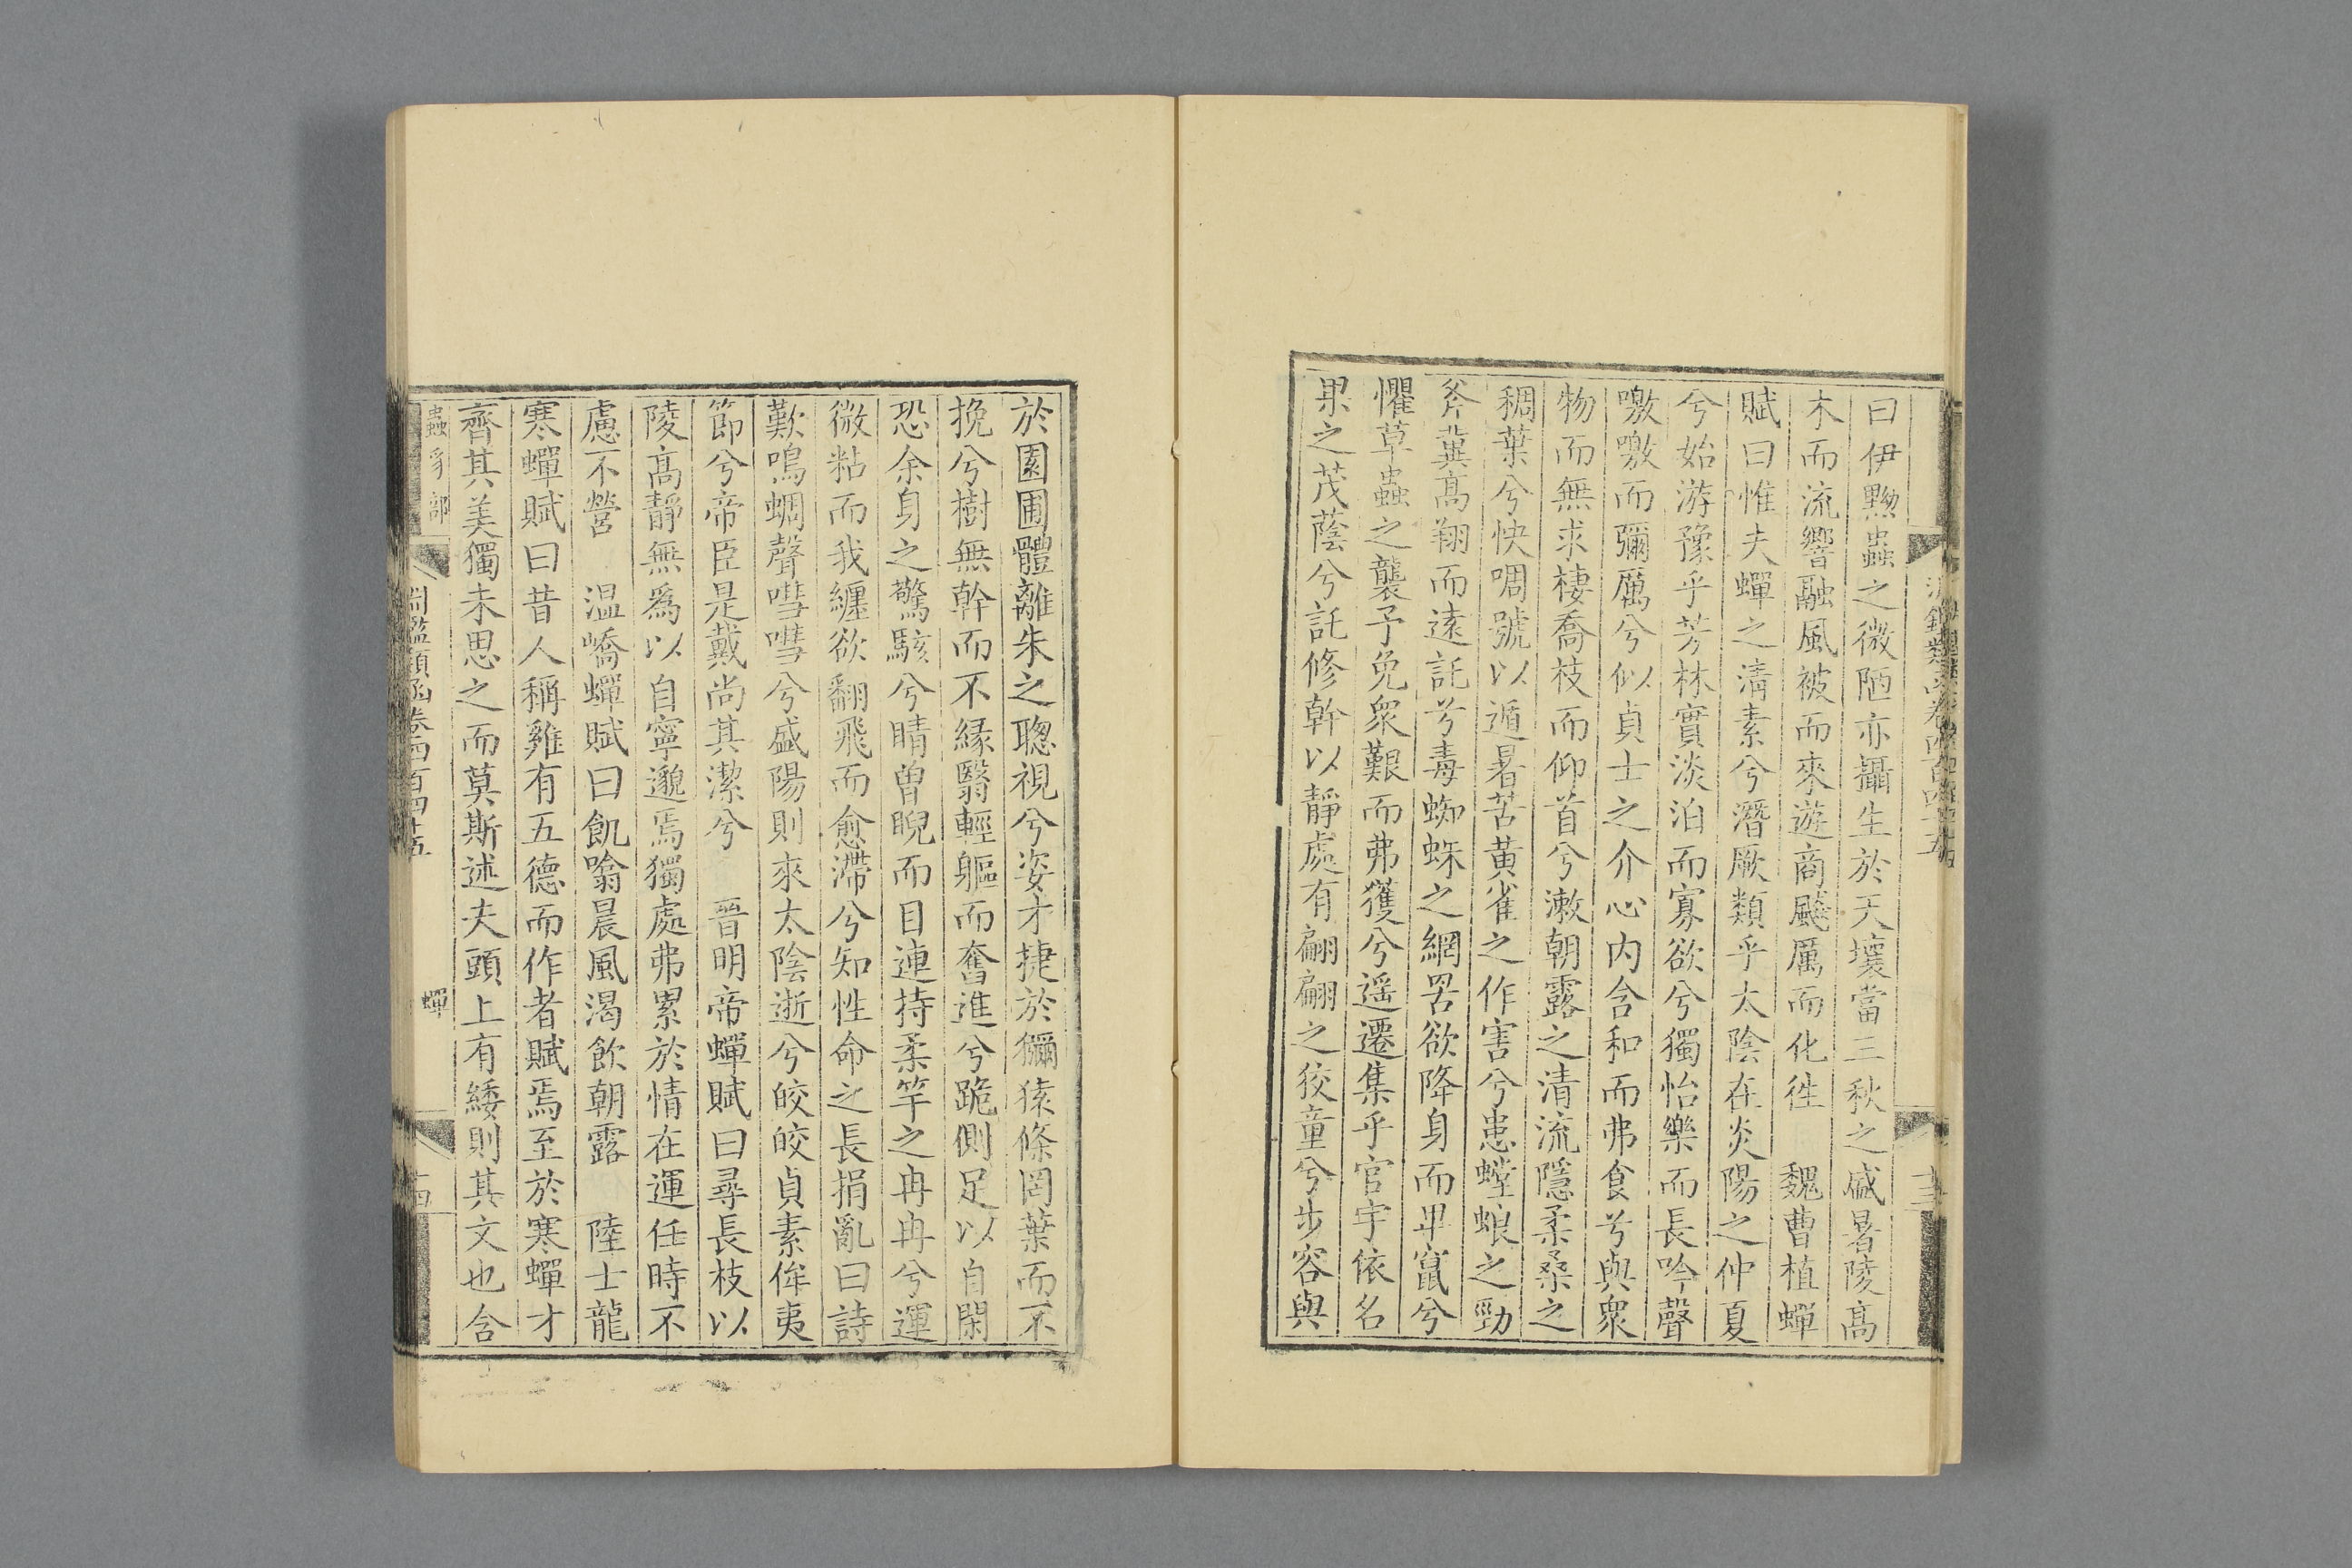 曰伊黝蟲之微陋亦攝生於天壤當三秋之盛暑陵高
木而流響融風被而來遊商飈厲而化徃　魏曹植蟬
賦曰惟夫蟬之清素兮潛厥類乎太陰在炎陽之仲夏
兮始游豫乎芳林實淡泊而寡欲兮獨怡樂而長吟聲
噭噭而彌厲兮似貞士之介心内含和而弗食兮與衆
物而無求棲喬枝而仰首兮漱朝露之清流隱柔桑之
稠葉兮怏啁號以遁暑苦黃雀之作害兮患螳蜋之勁
斧冀高翔而遠託兮毒蜘蛛之網罟欲降身而卑竄兮
懼草蟲之襲予免衆艱而弗獲兮遥遷集乎官宇依名
果之茂蔭兮託修幹以靜處有翩翩之狡童兮步容與
於園圃體離朱之聰視兮姿才捷於獼猿條罔葉而不
挽兮樹無幹而不緣翳輕軀而奮進兮跪側足以自閑
恐余身之驚駭兮睛曾睨而目連持柔竿之冉冉兮運
微粘而我纏欲翻飛而愈滯兮知性命之長捐亂曰詩
歎鳴蜩聲嘒嘒兮盛陽則來太陰逝兮皎皎貞素侔夷
節兮帝臣是戴尚其潔兮　晉明帝蟬賦曰尋長枝以
陵高靜無為以自寧邈焉獨處弗累於情在運任時不
慮不營　温嶠蟬賦曰飢噏晨風渴飲朝露　陸士龍
寒蟬賦曰昔人稱雞有五德而作者賦焉至於寒蟬才
齊其美獨未思之而莫斯述夫頭上有緌則其文也含
蟲豸部
淵鑑類函卷四百四十五　蟬
十四